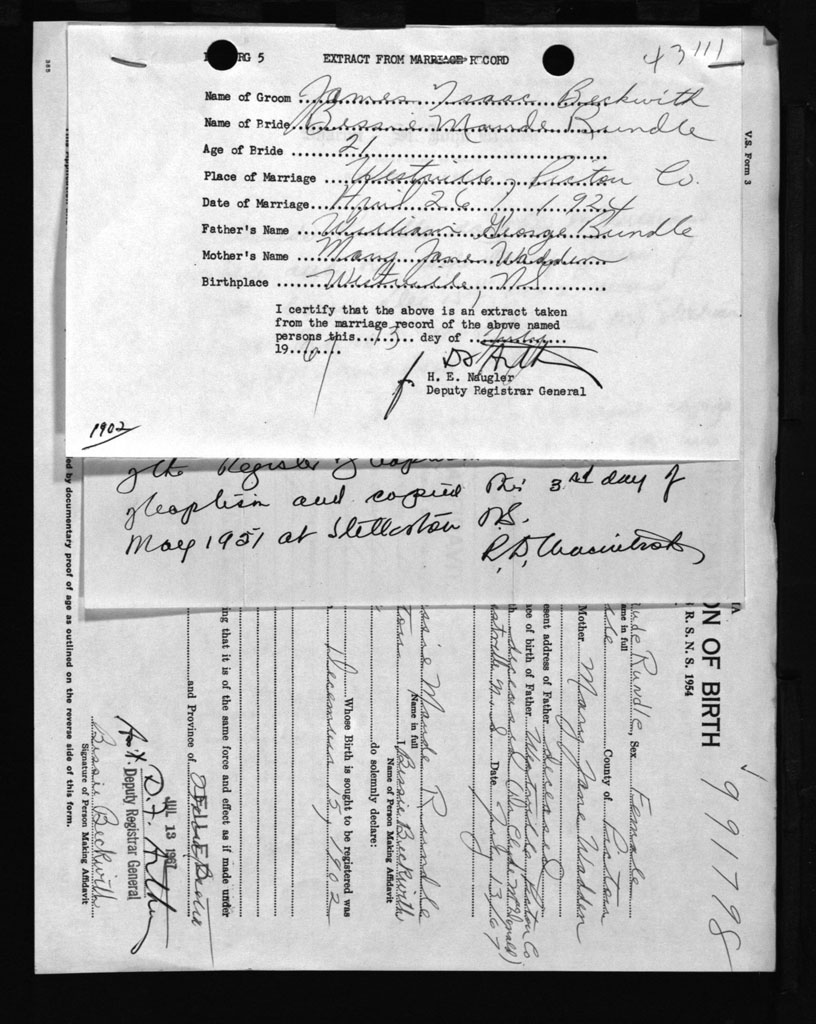 RG 5 EXTRACT FROM MARRIAGE RECORD
43111
Name of Groom James Isaac Beckwith
Name of Bride Bessie Maude Rundle
Age of Bride 21
Place of Marriage Westville, Pictou Co.
Date of Marriage April 26, 1924
Father's Name William George Rundle
Mother's Name Mary Jane Wadden
Birthplace Westville NS
I certify that the above is an extract taken
from the marriage record of the above named
persons this 13 day of
1967
H. E. Naugler
Deputy Registrar General
1902
V.S. Form 3
of the Register of
Baptism and copied this 3rd day of
May 1951 at Stellarton N.S.
ON OF BIRTH
R. S. N. S. 1954
991798
ude Rundle, Sex Female
ame in full
County of Pictou
Mother Mary Jane Wadden
esent address of Father deceased
ce of birth of Father Westville, Pictou Co.
deceased
Date July 13/67
ssie Maude Rundle
Name in full
I Bessie Beckwith
Name of Person Making Affidavit
do solemnly declare:
Whose Birth is sought to be registered was
December 15, 1902
ing that it is of the same force and effect as if made under
and Province of
JUL 13 1967
D. F. Arthur
Deputy Registrar General
Bessie Beckwith
Signature of Person Making Affidavit
ed by documentary proof of age as outlined on the reverse side of this form.